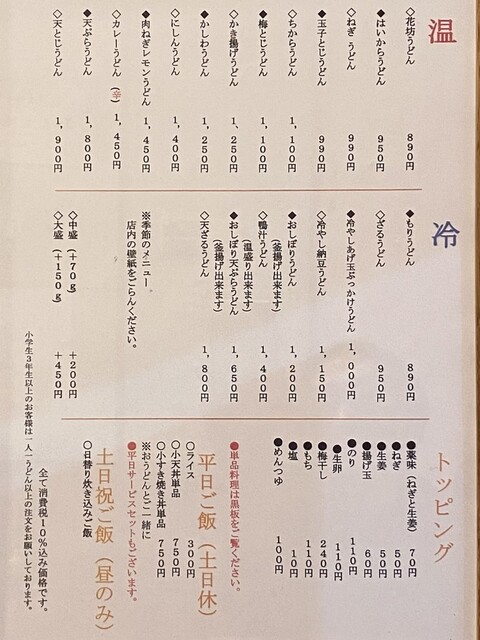 温
◇花坊うどん 890円
◆はいからうどん 950円
◇ねぎ うどん 990円
◆玉子とじうどん 990円
◇ちからうどん 1,100円
◆梅とじうどん 1,100円
◇かき揚げうどん 1,250円
◆かしわうどん 1,250円
◇にしんうどん 1,400円
◆肉ねぎレモンうどん 1,450円
◇カレーうどん(辛) 1,450円
◆天ぷらうどん 1,800円
◇天とじうどん 1,900円
冷
◆もりうどん 890円
◇ざるうどん 950円
◆冷やしあげ玉ぶっかけうどん 1,000円
◇冷やし納豆うどん 1,150円
◆おしぼりうどん 1,200円
(釜揚げ出来ます)
◇鴨汁うどん 1,400円
(温盛り出来ます)
◆おしぼり天ぷらうどん 1,650円
(釜揚げ出来ます)
◇天ざるうどん 1,800円
※季節のメニュー。
店内の壁紙をごらんください。
◇中盛(+70g) +200円
◇大盛(+150g) +450円
トッピング
●薬味(ねぎと生姜) 70円
●ねぎ 50円
●生姜 50円
●揚げ玉 60円
●のり 110円
●生卵 110円
●梅干し 240円
●もち 110円
●塩 10円
●めんつゆ 100円
●単品料理は黒板をご覧ください。
平日ご飯(土日休)
○ライス 300円
○小天丼単品 750円
○小すき焼き丼単品 750円
※おうどんとご一緒に
●平日サービスセットもございます。
土日祝ご飯(昼のみ)
○日替り炊き込みご飯
全て消費税10%込み価格です。
小学生3年生以上のお客様は一人一うどん以上の注文をお願いしております。